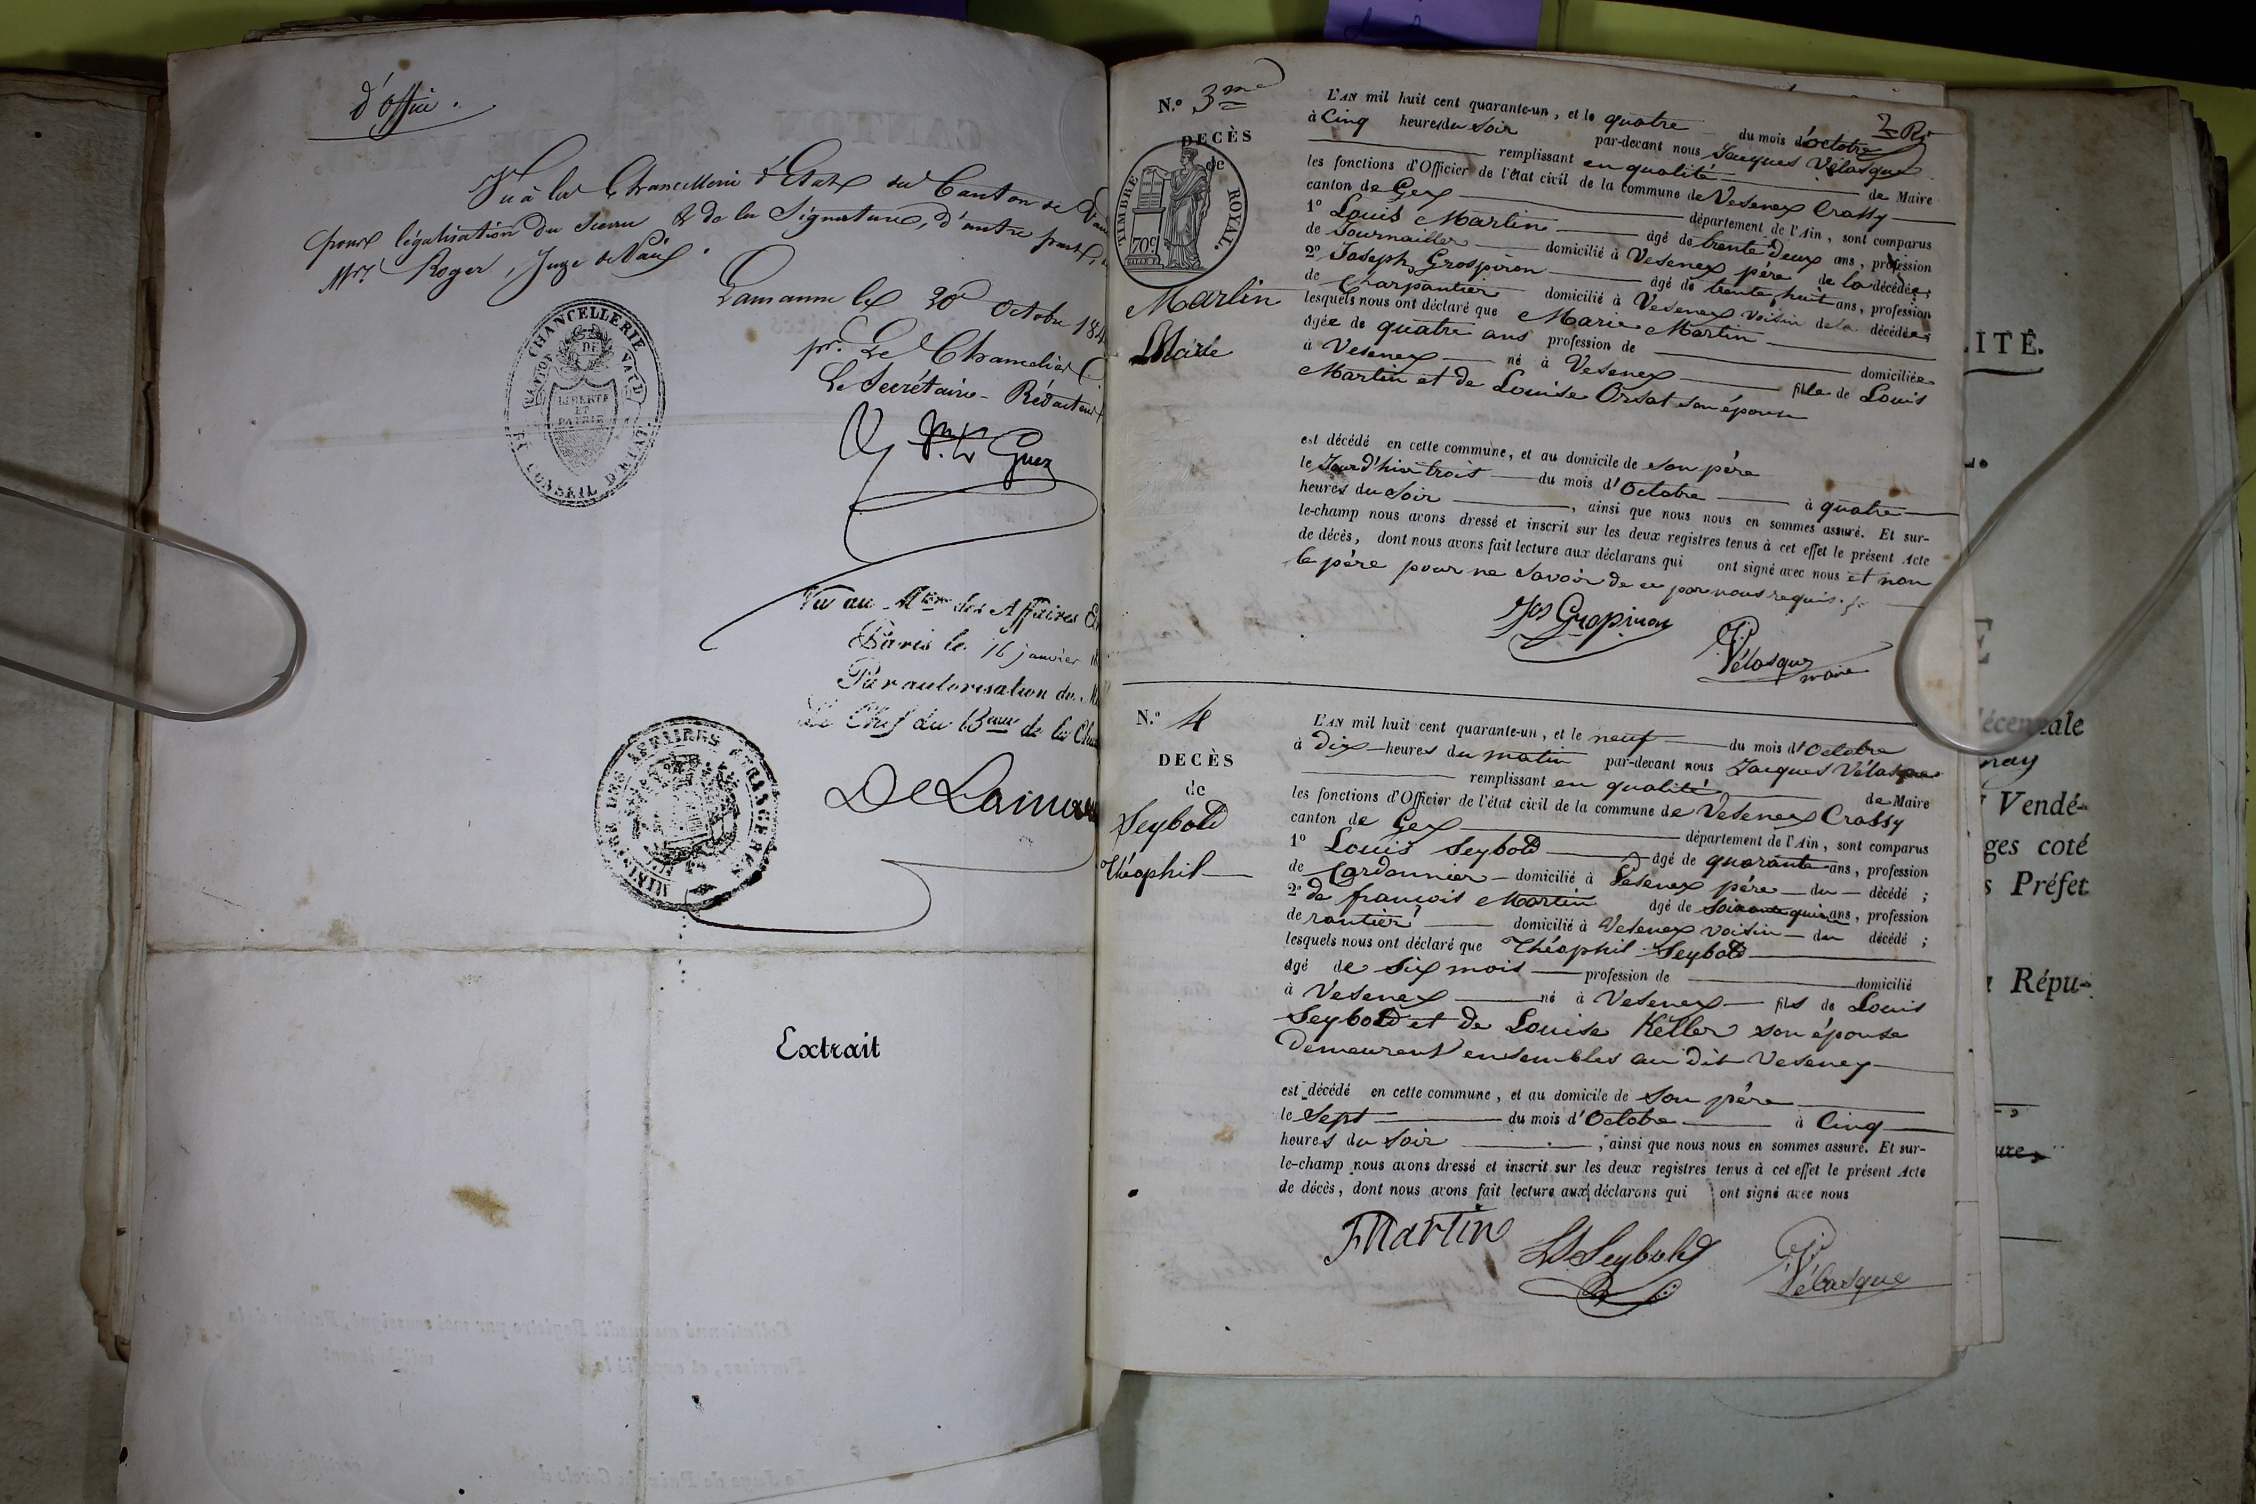 d'office.
Vu à la Chancellerie d'Etat du Canton de Vaud
pour légalisation du Sceau & de la Signature, d'autre part,
Mr. Roger, Juge de Paix.
Lausanne le 20 Octobre 184
pr. Le Chancelier
Le Secrétaire-Rédacteur
CHANCELLERIE
CANTON DE VAUD
LIBERTÉ
ET
PATRIE
ET CONSEIL D'ETAT
Vu au Mtère des Affaires E
Paris le 16 janvier
Par autorisation du M
Le Chef du Beau de la Ch
MINISTRE DES AFFAIRES ETRANGERES
Extrait
N.º 3me
DECÈS
de
TIMBRE ROYAL.
70c
Martin
Marie
L'AN mil huit cent quarante-un, et le quatre du mois d'octobre
à Cinq heures du soir par-devant nous Jacques Vélasque
remplissant en qualité de Maire
les fonctions d'Officier de l'état civil de la commune de Vesenex Crassy
canton de Gex département de l'Ain, sont comparus
1º Louis Martin âgé de trente deux ans, profession
de Journailler domicilié à Vesenex père de la décédée;
2º Joseph Grospiron âgé de trente huit ans, profession
de Charpantier domicilié à Vesenex voisin de la décédée;
lesquels nous ont déclaré que Marie Martin
âgée de quatre ans profession de domiciliée
à Vesenex né à Vesenex fille de Louis
Martin et de Louise Orsat son épouse
est décédé en cette commune, et au domicile de son père
le Jour d'hier trois du mois d'Octobre à quatre
heures du soir, ainsi que nous nous en sommes assuré. Et sur-
le-champ nous avons dressé et inscrit sur les deux registres tenus à cet effet le présent Acte
de décès, dont nous avons fait lecture aux déclarans qui ont signé avec nous et non
le père pour ne savoir de ce par nous requis.
Jos Grospiron
Vélasque
maire
N.º 4
DECÈS
de
Seybold
Théophil
L'AN mil huit cent quarante-un, et le neuf du mois d'Octobre
à Dix heures du matin par-devant nous Jacques Vélasque
remplissant en qualité de Maire
les fonctions d'Officier de l'état civil de la commune de Vesenex Crassy
canton de Gex département de l'Ain, sont comparus
1º Louis Seybold âgé de quarante ans, profession
de Cordonnier domicilié à Vesenex père du décédé;
2º de françois Martin âgé de soixante quinze ans, profession
de rantier domicilié à Vesenex voisin du décédé;
lesquels nous ont déclaré que Théophil Seybold
âgé de six mois profession de domicilié
à Vesenex né à Vesenex fils de Louis
Seybold et de Louise Keller son épouse
Demeurent ensembles au dit Vesenex
est décédé en cette commune, et au domicile de son père
le Sept du mois d'Octobre à Cinq
heures du soir, ainsi que nous nous en sommes assuré. Et sur-
le-champ nous avons dressé et inscrit sur les deux registres tenus à cet effet le présent Acte
de décès, dont nous avons fait lecture aux déclarans qui ont signé avec nous
F Martin
Ls Seybold
Vélasque
LITÉ.
décennale
nay
Vendé-
ges coté
s Préfet
Répu-